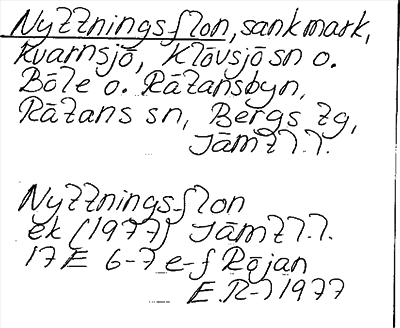 Nyttningsflon, sank mark,
Kvarnsjö, Klövsjö sn o.
Böle o. Rätansbyn,
Rätans sn, Bergs tg,
Jämtl.l.
Nyttningsflon
ek (1977) Jämtl.l.
17E 6-7 e-f Röjan
E.R-l 1977